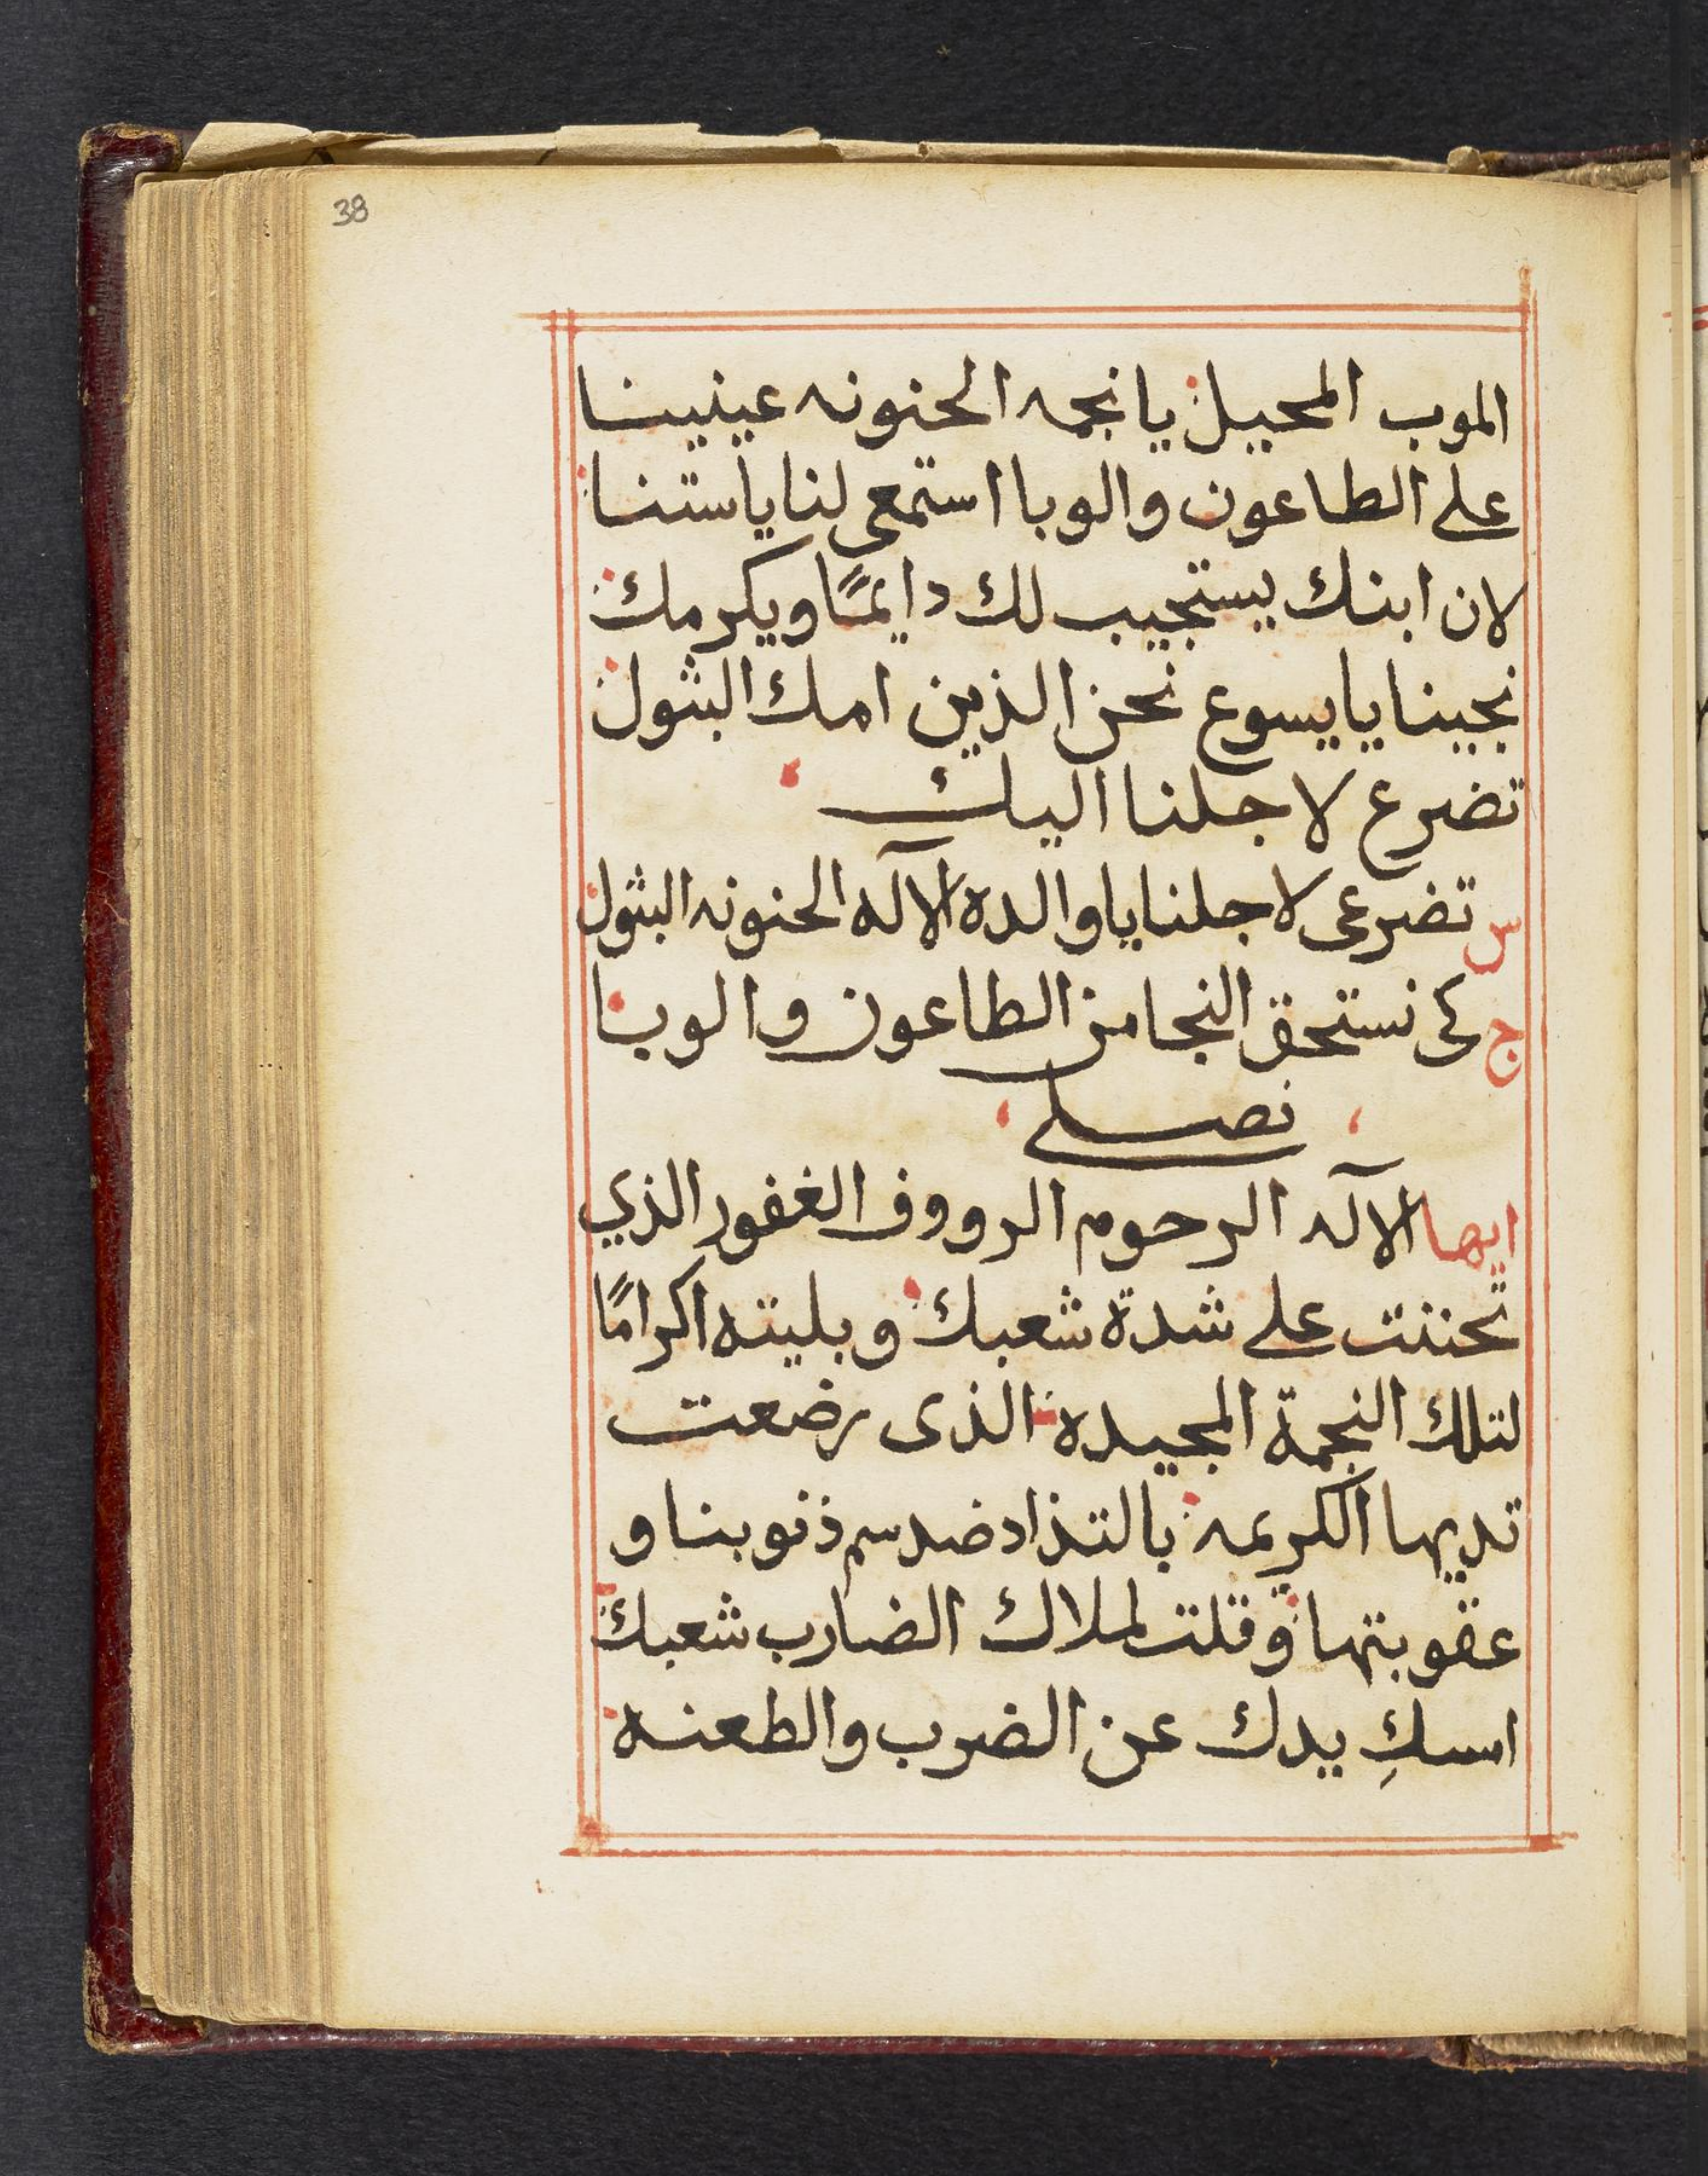 38
الموب المحيل يا نجمه الحنونه عينينا
على الطاعون والوبا استمعى لنا ياستنا
لان ابنك يستجيب لك دايمًا ويكرمك
نجينا يا يسوع نحن الذين امك البثول
تضرع لاجلنا اليك
س تضرعى لاجلنا ياوالدة الآله الحنونه البثول
ج كى نستحق النجا من الطاعون والوبا
نصلى
ايها الآله الرحوم الرووف الغفور الذي
تحننت على شدة شعبك وبليته اكرامًا
لتلك النجمة المجيده الذى رضعت
تديها الكريمه بالتذاد ضد سم ذنوبنا و
عقوبتها وقلت لملاك الضارب شعبك
اسك يدك عن الضرب والطعنه